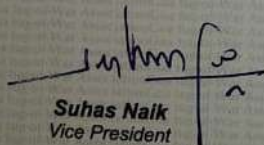 Suhas Naik
Vice President